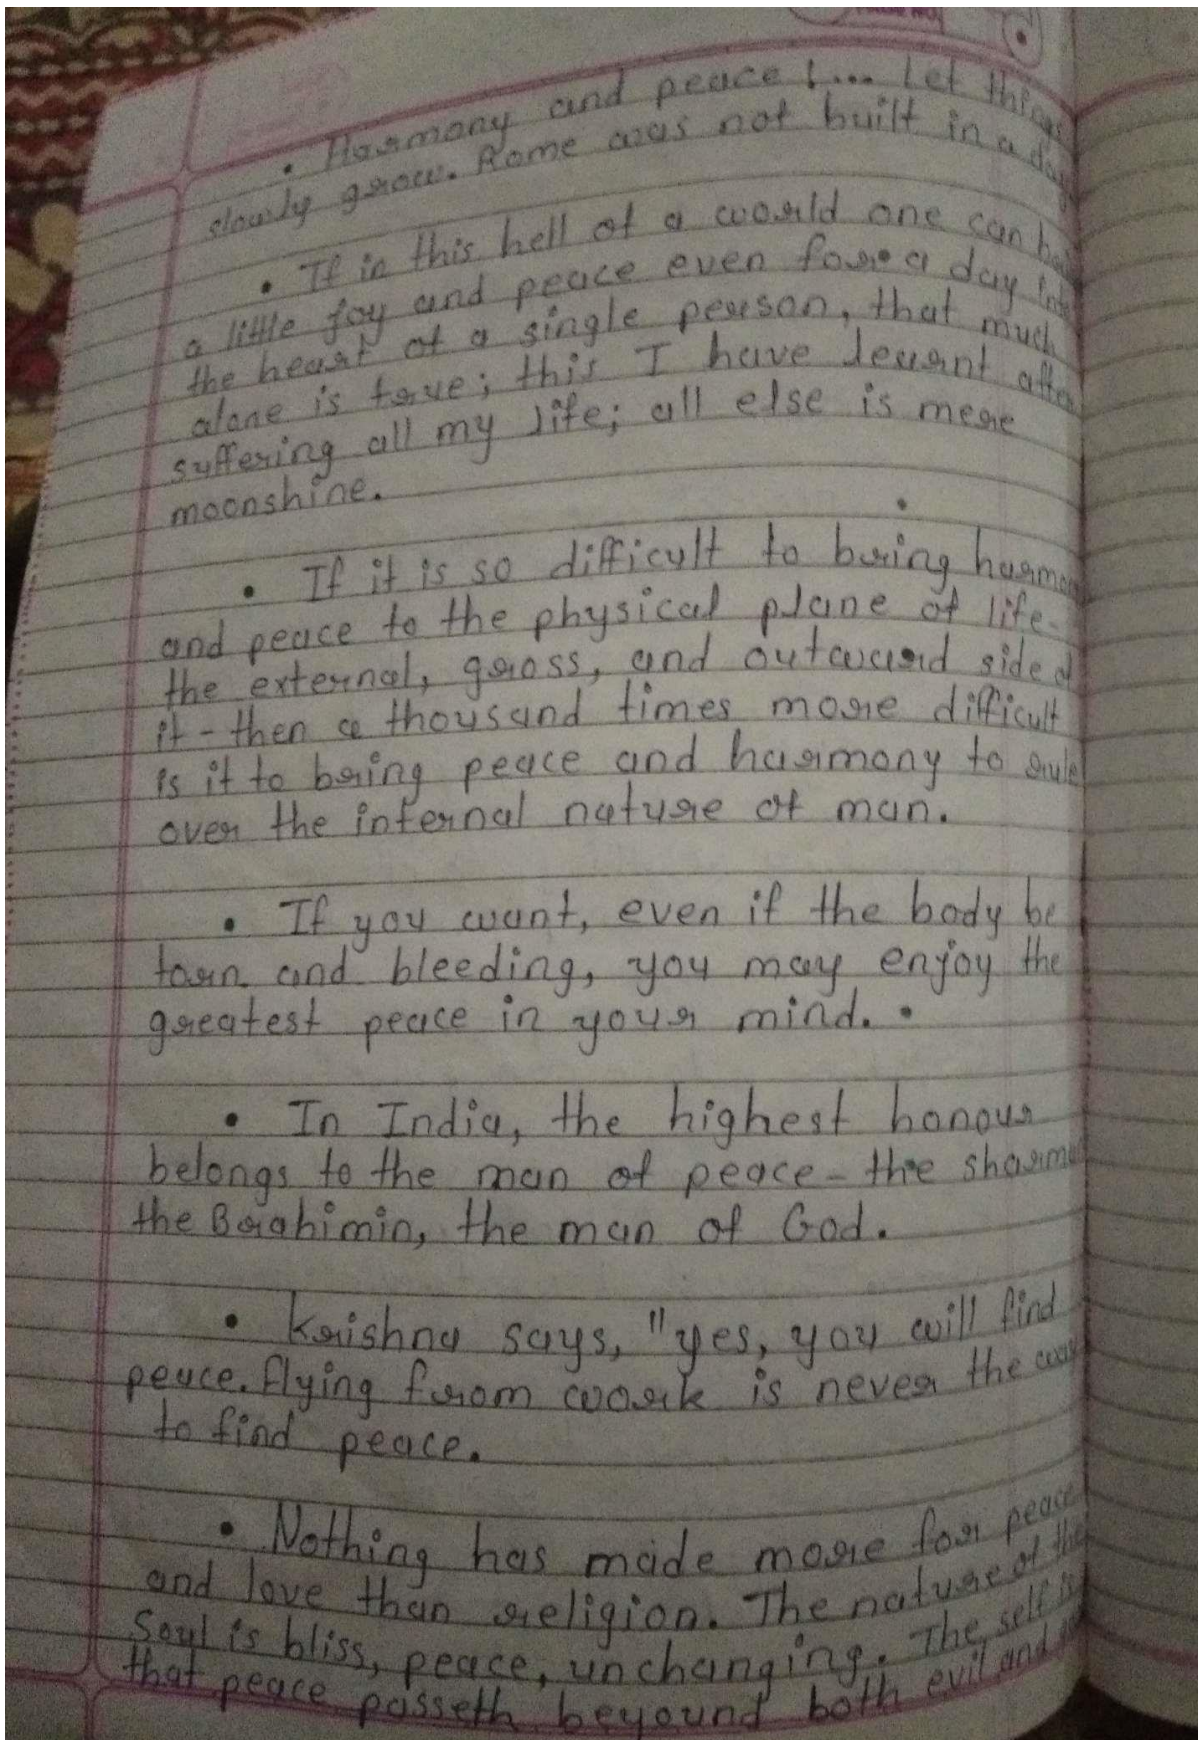 • Harmony and peace!... Let things
slowly grow. Rome was not built in a day
• If in this hell of a world one can
a little joy and peace even for a day into
the heart of a single person, that much
alone is true; this I have learnt after
suffering all my life; all else is mere
moonshine.
• If it is so difficult to bring harmony
and peace to the physical plane of life-
the external, gross, and outward side of
it - then a thousand times more difficult
is it to bring peace and harmony to rule
over the internal nature of man.
• If you want, even if the body be
torn and bleeding, you may enjoy the
greatest peace in your mind. •
• In India, the highest honour
belongs to the man of peace - the
the Brahimin, the man of God.
• Krishna says, "yes, you will find
peace. Flying from work is never the way
to find peace.
• Nothing has made more for peace
and love than religion. The nature of the
Soul is bliss, peace, unchanging. The self is
that peace passeth beyound both evil and